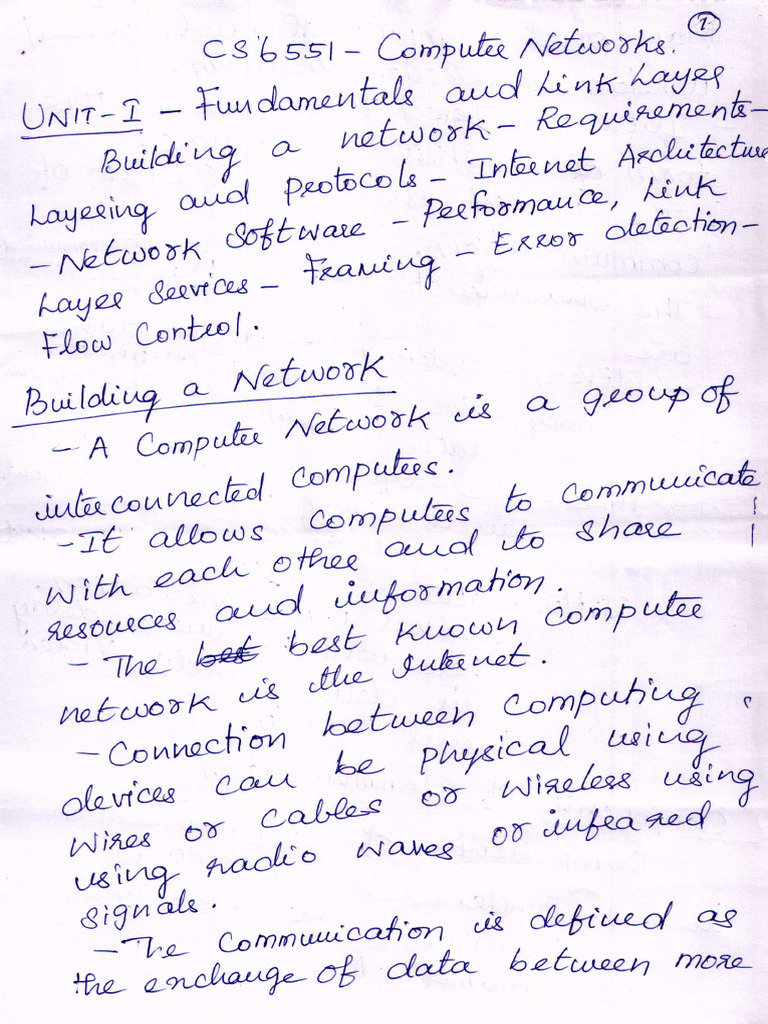 1
CS6551 - Computer Networks.
UNIT-I - Fundamentals and Link Layer
Building a network - Requirements -
Layering and protocols - Internet Architecture
- Network Software - Performance, Link
Layer Services - Framing - Error detection -
Flow Control.
Building a Network
- A Computer Network is a group of
interconnected computers.
- It allows computers to communicate
with each other and to share
resources and information.
- The best best known computer
network is the Internet.
- Connection between computing
devices can be physical using
wires or cables or wireless using
using radio waves or infrared
signals.
- The communication is defined as
the exchange of data between more